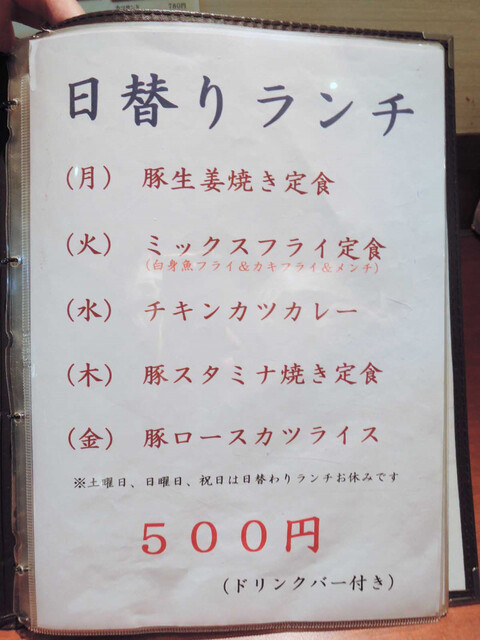 日替りランチ
（月）　豚生姜焼き定食
（火）　ミックスフライ定食
（白身魚フライ＆カキフライ＆メンチ）
（水）　チキンカツカレー
（木）　豚スタミナ焼き定食
（金）　豚ロースカツライス
※土曜日、日曜日、祝日は日替わりランチお休みです
５００円
（ドリンクバー付き）